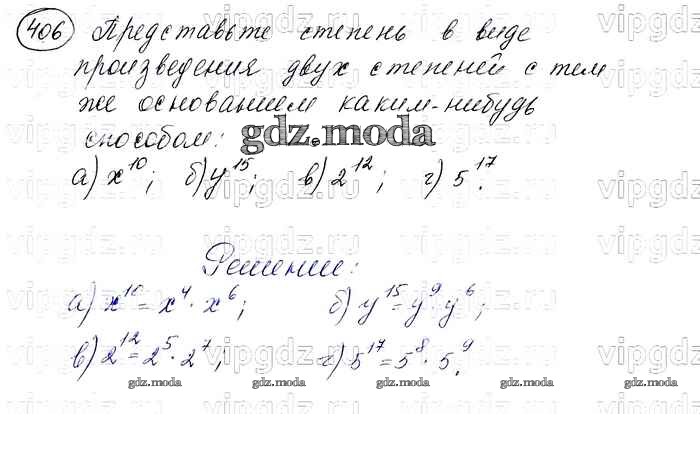 406 Представьте степень в виде
произведения двух степеней с тем
же основанием каким-нибудь
способом:
gdz.moda
а) x¹⁰; б) y¹⁵; в) 2¹²; г) 5¹⁷.
Решение:
а) x¹⁰ = x⁴ · x⁶; б) y¹⁵ = y⁹ · y⁶;
в) 2¹² = 2⁵ · 2⁷; г) 5¹⁷ = 5⁸ · 5⁹.
gdz.moda gdz.moda gdz.moda gdz.moda gdz.moda